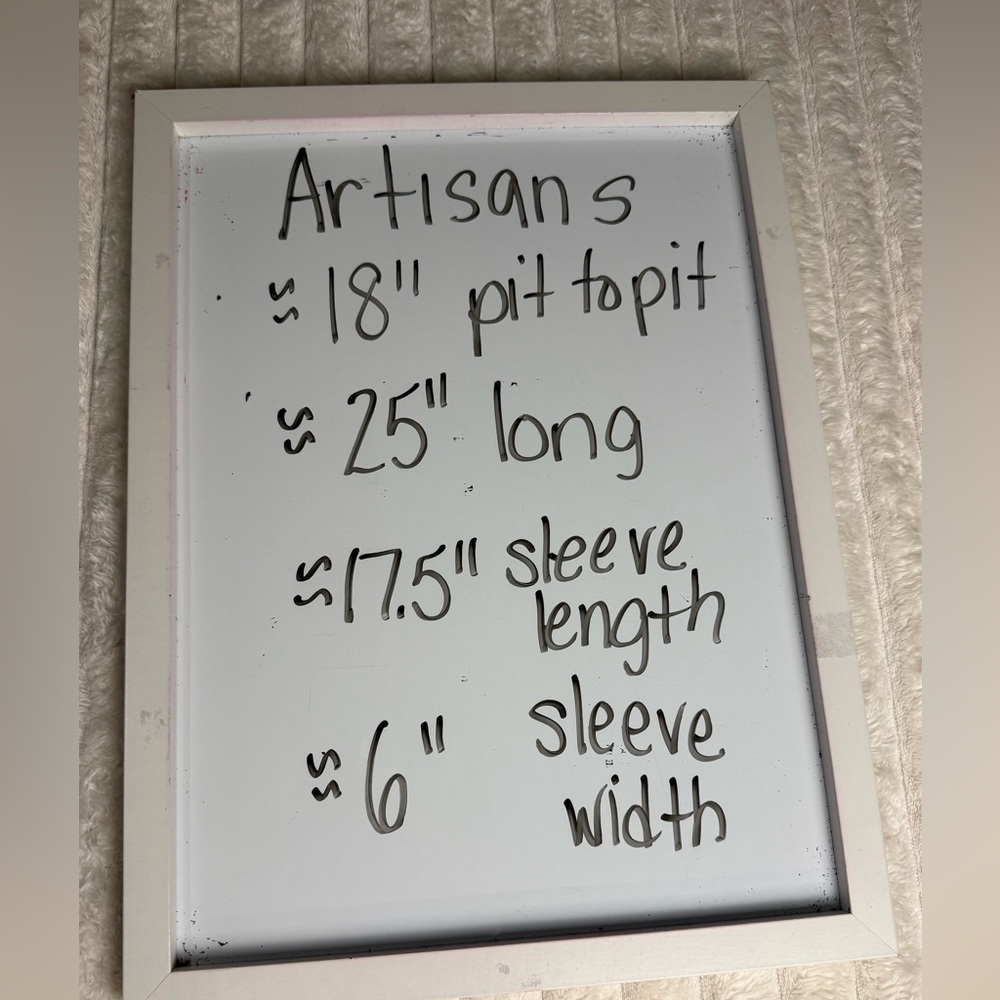 Artisans
≈ 18" pit to pit
≈ 25" long
≈ 17.5" sleeve
length
≈ 6" sleeve
width